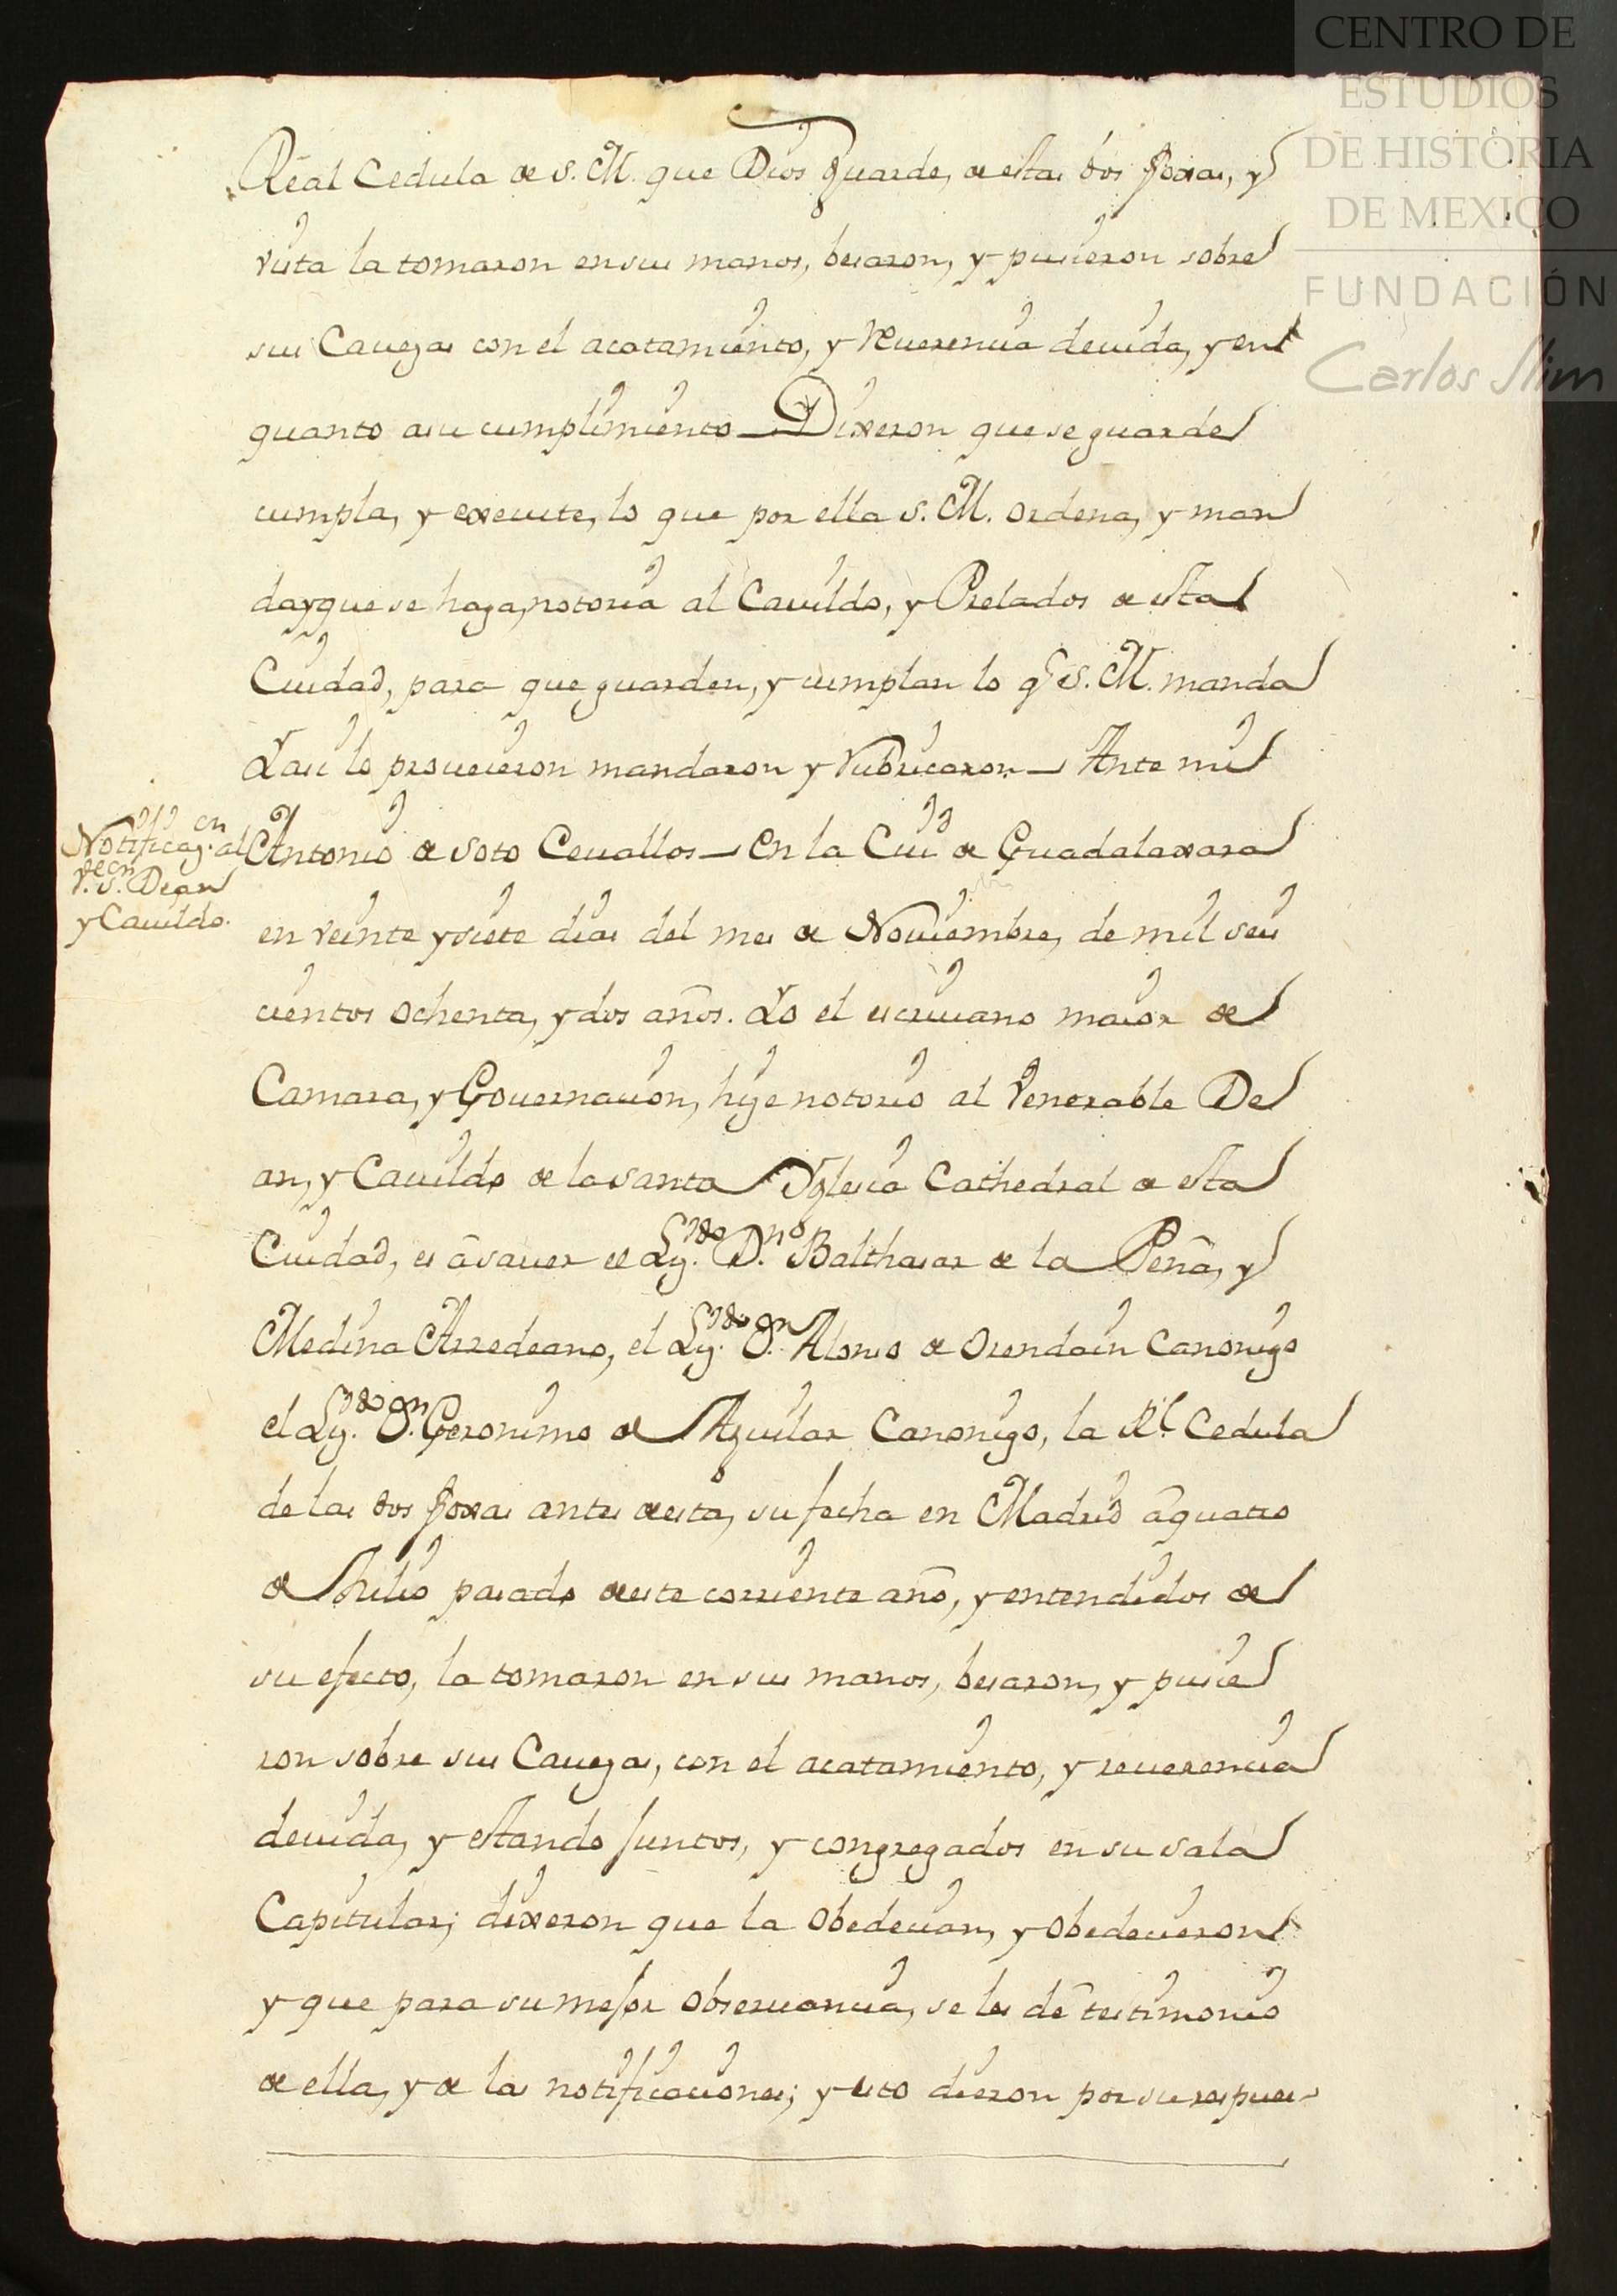 CENTRO DE
ESTUDIOS
DE HISTORIA
DE MEXICO
FUNDACIÓN
Carlos Slim
Real Cedula de S. M. que Dios Guarde, de estas dos foxas, y
vista la tomaron en sus manos, besaron, y pusieron sobre
sus Cauezas con el acatamiento, y Reuerencia deuida, y en
quanto a su cumplimiento Dixeron que se guarde
cumpla, y execute, lo que por ella S. M. ordena, y man
da, y que se haga, notoria al Cauildo, y Prelados de esta
Ciudad, para que guarden, y cumplan lo q̃ S. M. manda
Y asi lo proueieron mandaron y Rubricaron Ante mi
Notificaz.on al
V.e S.or Dean
y Cauildo.
Antonio de Soto Ceuallos en la Ciud. de Guadalaxara
en veinte y siete dias del mes de Nouiembre, de mil seis
cientos ochenta, y dos años. Yo el escriuano maior de
Camara, y Gouernacion, hize notorio al Venerable De
an, y Cauildo de la santa Yglesia Cathedral de esta
Ciudad, es â sauer el Liz.do D.n Balthasar de la Peña, y
Medina Arzedeano, el Liz.do D.n Alonso de Orendain Canonigo
el Liz.do D.n Geronimo de Aguilar Canonigo, la R.l Cedula
de las dos foxas antes de esta, su fecha en Madrid â quatro
de Julio pasado de este corriente año, y entendidos de
su efecto, la tomaron en sus manos, besaron, y pusie
ron sobre sus Cauezas, con el acatamiento, y reuerencia
deuida, y estando Juntos, y congregados en su sala
Capitular; dixeron que la obedecian, y obedecieron
y que para su mejor obseruancia, se les dê testimonio
de ella, y de las notificaciones; y esto dieron por su respues-